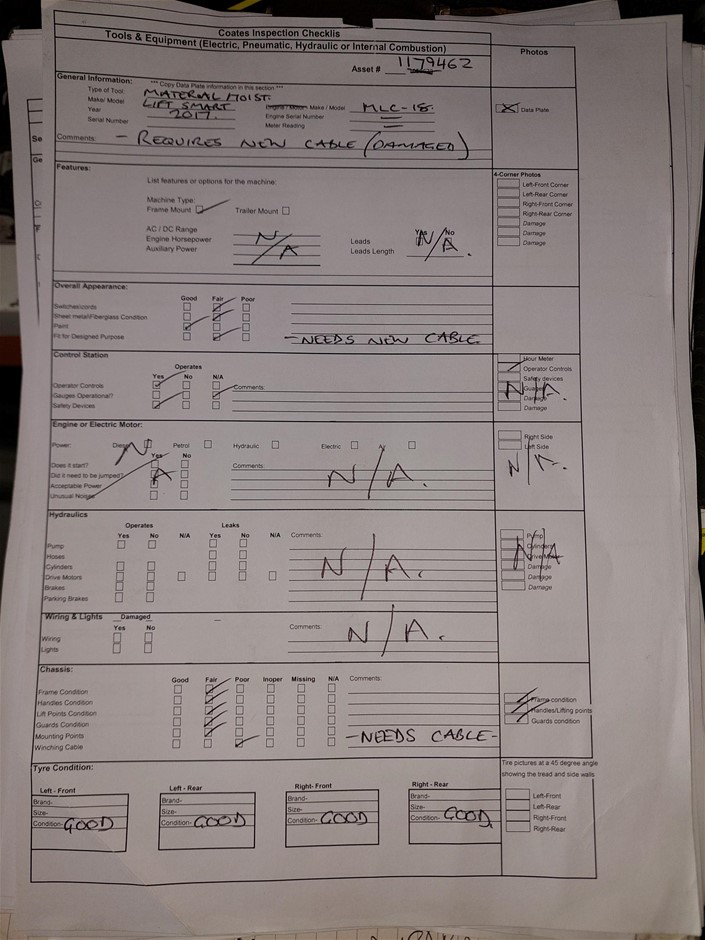 Coates Inspection Checklis
Tools & Equipment (Electric, Pneumatic, Hydraulic or Internal Combustion)
Photos
Asset # 1179462
General Information: *** Copy Data Plate Information in this section ***
Type of Tool: MATERIAL HOIST.
Make/ Model LIFT SMART Engine / Motor Make / Model MLC-18.
Year 2017. Engine Serial Number
Serial Number Meter Reading
Data Plate
Comments: - REQUIRES NEW CABLE (DAMAGED)
Features:
4-Corner Photos
List features or options for the machine:
Left-Front Corner
Left-Rear Corner
Machine Type:
Right-Front Corner
Frame Mount Trailer Mount
Right-Rear Corner
Damage
Damage
Damage
AC / DC Range Yes No
Engine Horsepower N/A Leads N/A.
Auxiliary Power Leads Length
Overall Appearance:
Good Fair Poor
Switches/cords
Sheet metal/Fiberglass Condition
Paint
Fit for Designed Purpose -NEEDS NEW CABLE
Control Station
Hour Meter
Operates
Operator Controls
Yes No N/A
Safety devices
Operator Controls Comments:
Guages
Gauges Operational?
Damage
N/A.
Safety Devices
Damage
Engine or Electric Motor:
Power: Diesel Petrol Hydraulic Electric Air
Right Side
Left Side
N/A
Yes No
Does it start? Comments:
Did it need to be jumped?
N/A.
N/A.
Acceptable Power
Unusual Noises
Hydraulics
Operates Leaks
Yes No N/A Yes No N/A Comments:
Pump
Pump
Hoses
Cylinders
Cylinders
Drive Motors
Drive Motor
N/A.
N/A
Brakes
Damage
Parking Brakes
Damage
Damage
Wiring & Lights Damaged
Yes No Comments: N/A.
Wiring
Lights
Chassis:
Good Fair Poor Inoper Missing N/A Comments:
Frame Condition
Frame condition
Handles Condition
Handles/Lifting points
Lift Points Condition
Guards condition
Guards Condition
Mounting Points -NEEDS CABLE-
Winching Cable
Tyre Condition:
Tire pictures at a 45 degree angle
showing the tread and side walls
Left - Front Left - Rear Right- Front Right - Rear
Brand- Brand- Brand- Brand-
Size- Size- Size- Size-
Condition- GOOD Condition- GOOD Condition- GOOD Condition- GOOD
Left-Front
Left-Rear
Right-Front
Right-Rear